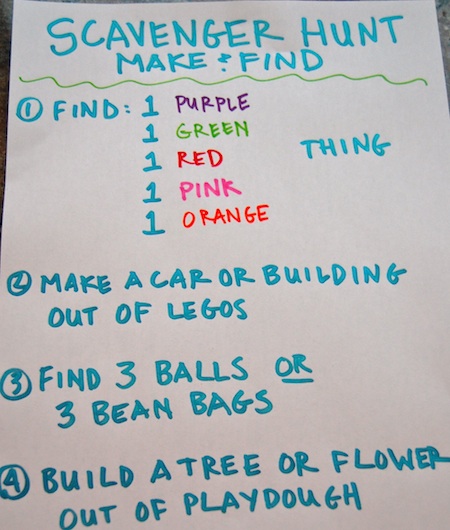 SCAVENGER HUNT
MAKE & FIND
① FIND: 1 PURPLE
1 GREEN
1 RED THING
1 PINK
1 ORANGE
② MAKE A CAR OR BUILDING
OUT OF LEGOS
③ FIND 3 BALLS OR
3 BEAN BAGS
④ BUILD A TREE OR FLOWER
OUT OF PLAYDOUGH